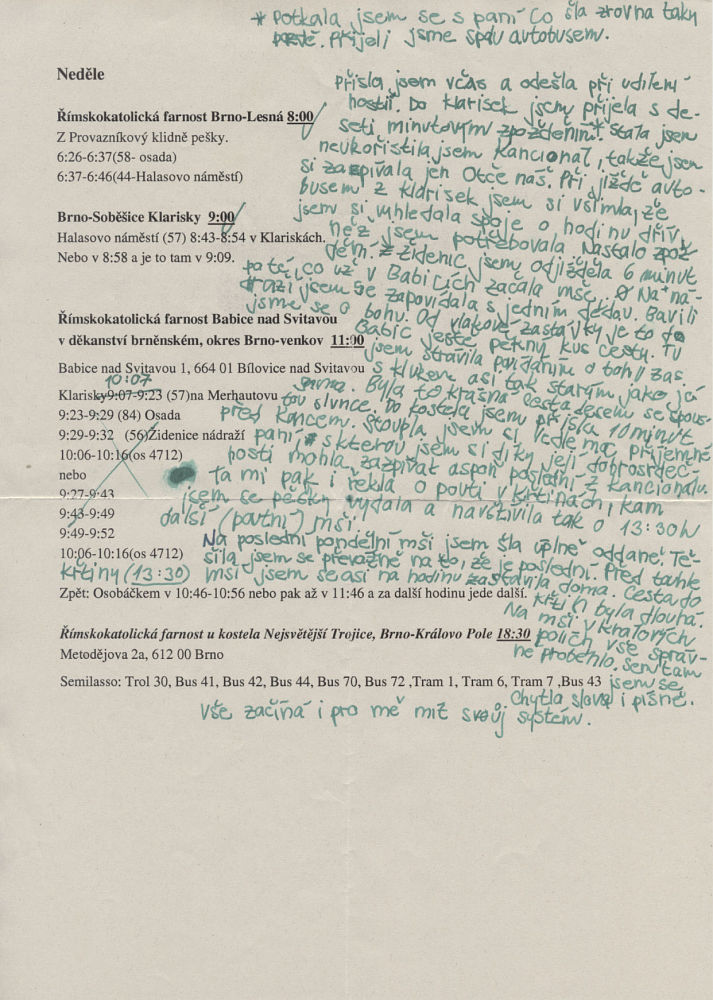 * Potkala jsem se s paní co šla zrovna taky
pozdě. Přijeli jsme spolu autobusem.
Neděle
Přišla jsem včas a odešla při udílení
Římskokatolická farnost Brno-Lesná 8:00
hostií. Do Klarisek jsem přijela s de-
Z Provazníkový klidně pešky.
seti minutovým zpožděním*. Stála jsem
6:26-6:37(58- osada)
neukořistila jsem kancionál, takže jsem
6:37-6:46(44-Halasovo náměstí)
si zazpívala jen Otče náš. Při jízdě auto-
busem z klarisek jsem si všimla, že
Brno-Soběšice Klarisky 9:00
jsem si vyhledala spoje o hodinu dřív
Halasovo náměstí (57) 8:43-8:54 v Klariskách.
než jsem potřebovala. Nastalo zpož-
Nebo v 8:58 a je to tam v 9:09.
dění. Z Židenic jsem odjížděla 6 minut
poté, co už v Babicích začala mše. Na ná-
jsem se zapovídala s jedním dědou. Bavili
jsme se o bohu. Od vlakové zastávky je to do
Římskokatolická farnost Babice nad Svitavou
Babic ještě pěkný kus cesty. Tu
v děkanství brněnském, okres Brno-venkov 11:00
jsem strávila povídáním o bohu zas
Babice nad Svitavou 1, 664 01 Bílovice nad Svitavou
s klukem asi tak starým jako já
10:07
Klarisky9:07-9:23 (57)na Merhautovu
Byla to krásná cesta lesem se spous-
tou slunce. Do kostela jsem přišla 10 minut
9:23-9:29 (84) Osada
před koncem. Stoupla jsem si vedle moc příjemné
9:29-9:32 (56)Židenice nádraží
paní * s kterou jsem si díky její dobrosrdeč-
10:06-10:16(os 4712)
nosti mohla zazpívat aspoň poslední z kancionálu.
nebo
Ta mi pak i řekla o pouti v Křtinách, kam
9:27-9:43
jsem se pěšky vydala a navštívila tak o 13:30h
9:43-9:49
další (poutní) mši!
9:49-9:52
Na poslední pondělní mši jsem šla úplně oddaně. Tě-
10:06-10:16(os 4712)
šila jsem se převážně na to, že je poslední. Před touhle
Křtiny (13:30)
mší jsem se asi na hodinu zastavila doma. Cesta do
Zpět: Osobáčkem v 10:46-10:56 nebo pak až v 11:46 a za další hodinu jede další.
Křtin byla dlouhá.
Na mši v Králových
Římskokatolická farnost u kostela Nejsvětější Trojice, Brno-Královo Pole 18:30
polích vše správ-
Metodějova 2a, 612 00 Brno
ně proběhlo. Sem tam
Semilasso: Trol 30, Bus 41, Bus 42, Bus 44, Bus 70, Bus 72 ,Tram 1, Tram 6, Tram 7 ,Bus 43
jsem se
chytla slova i písně.
Vše začíná i pro mě mít svůj systém.